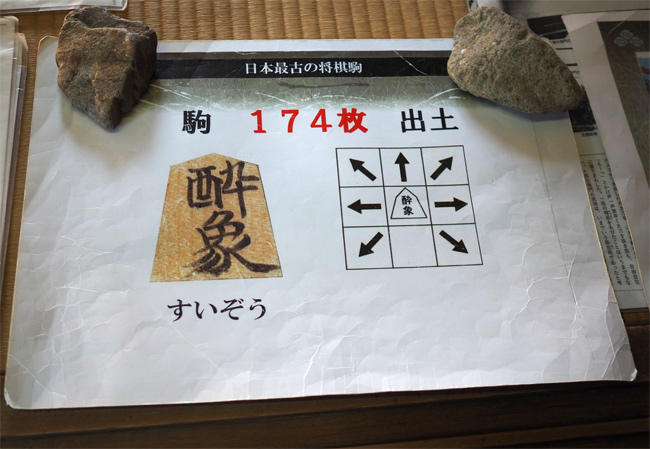 日本最古の将棋駒
駒 174枚 出土
酔象
酔象
すいぞう